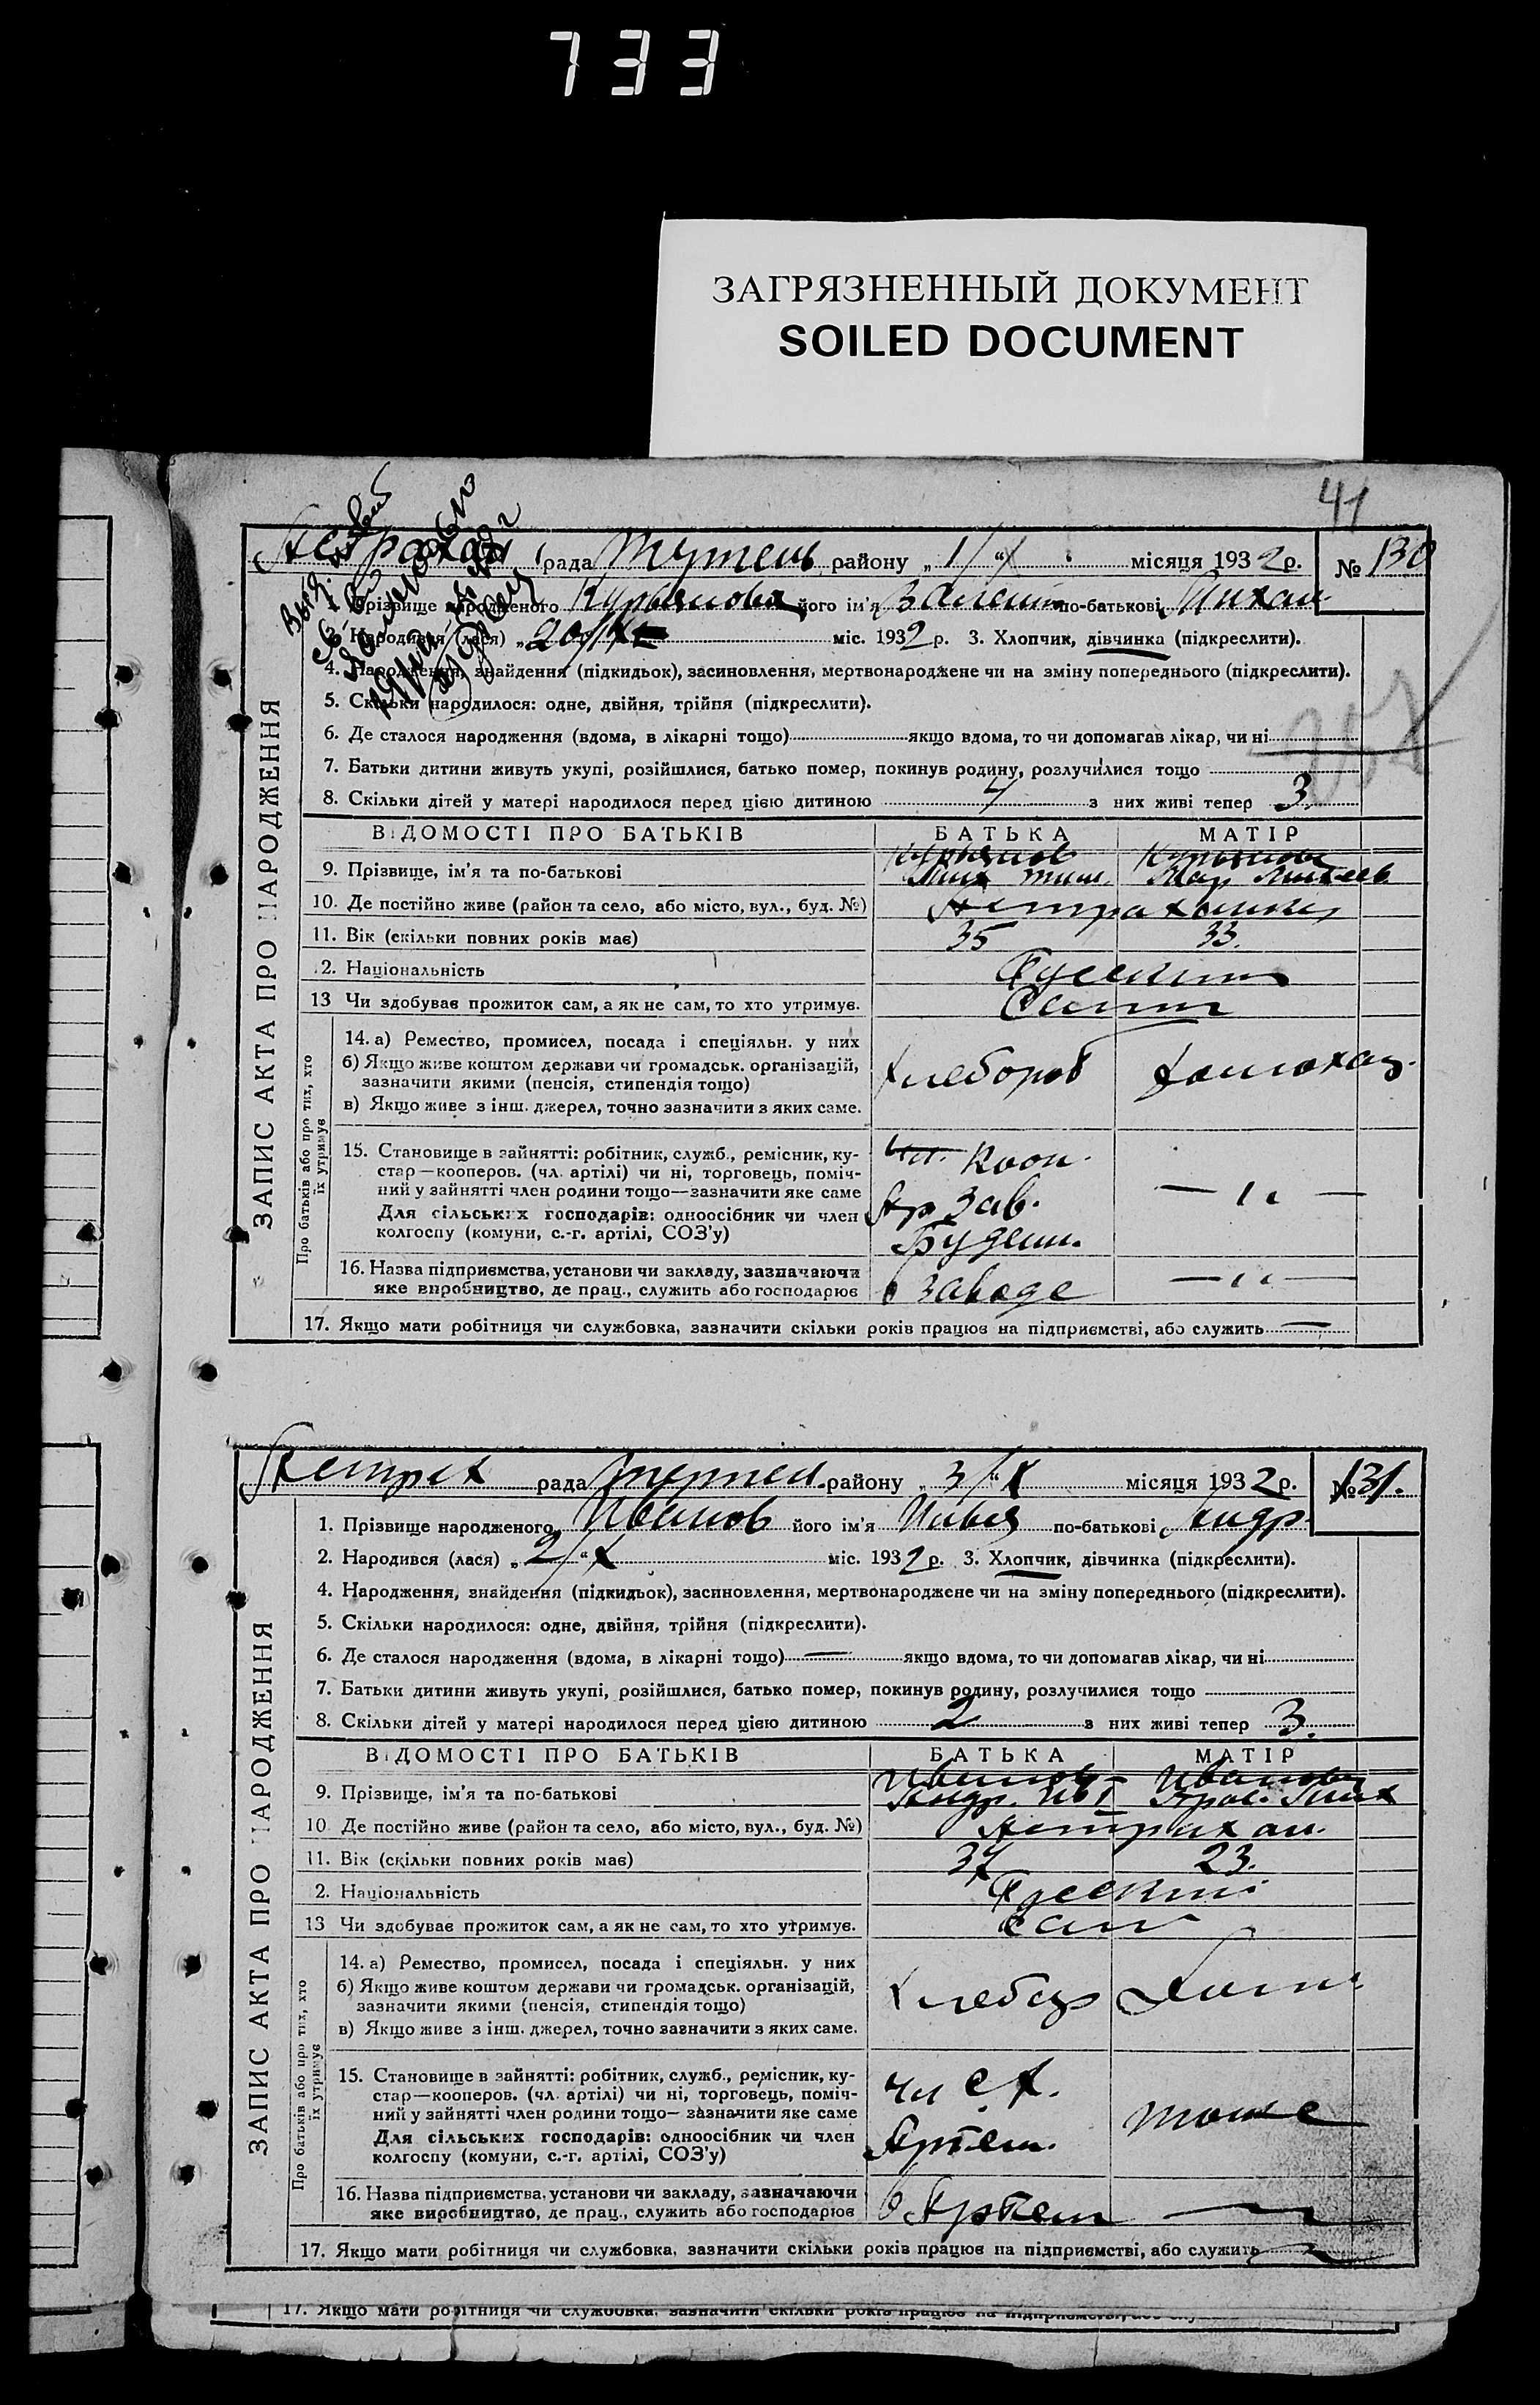 733
ЗАГРЯЗНЕННЫЙ ДОКУМЕНТ
SOILED DOCUMENT
41
Астрахан рада район у „ 1/X “ місяця 1932 р. № 130
Прізвище народженого Курьянова його ім'я по-батькові Михаи
Народився (лася) „ 20/IX міс. 1932 р. 3. Хлопчик, дівчинка (підкреслити).
4. Народження, знайдення (підкидьок), засиновлення, мертвонароджене чи на зміну попереднього (підкреслити).
5. Скільки народилося: одне, двійня, трійня (підкреслити).
6. Де сталося народження (вдома, в лікарні тощо) якщо вдома, то чи допомагав лікар, чи ні
7. Батьки дитини живуть укупі, розійшлися, батько помер, покинув родину, розлучилися тощо
8. Скільки дітей у матері народилося перед цією дитиною 4 з них живі тепер 3
ЗАПИС АКТА ПРО НАРОДЖЕННЯ
ВІДОМОСТІ ПРО БАТЬКІВ БАТЬКА МАТІР
9. Прізвище, ім'я та по-батькові Курьянов Мих Тим. Курьянова Мар
10. Де постійно живе (район та село, або місто, вул., буд. №) Астраханка
11. Вік (скільки повних років має) 35 33.
2. Національність Русские
13 Чи здобував прожиток сам, а як не сам, то хто утримув. Сами
Про батьків або про тих, хто їх утримує
14. а) Ремество, промисел, посада і спеціяльн. у них
б) Якщо живе коштом держави чи громадськ. організацій,
зазначити якими (пенсія, стипендія тощо) Хлебороб Домохаз.
в) Якщо живе з інш. джерел, точно зазначити з яких саме.
15. Становище в зайнятті: робітник, служб., ремісник, ку-
стар—кооперов. (чл. артілі) чи ні, торговець, поміч- Кооп.
ний у зайнятті член родини тощо—зазначити яке саме — „ —
Для сільських господарів: одноосібник чи член
колгоспу (комуни, с.-г. артілі, СОЗ'у) Буденн.
16. Назва підприємства, установи чи закладу, зазначаючи
яке виробництво, де прац., служить або господарює в заводе — „ —
17. Якщо мати робітниця чи службовка, зазначити скільки років працює на підприємстві, або служить —
Астрах рада район у „ 3/X “ місяця 1932 р. № 131.
1. Прізвище народженого Иванов його ім'я по-батькові Андр.
2. Народився (лася) „ 2/“ X міс. 1932 р. 3. Хлопчик, дівчинка (підкреслити).
4. Народження, знайдення (підкидьок), засиновлення, мертвонароджене чи на зміну попереднього (підкреслити).
5. Скільки народилося: одне, двійня, трійня (підкреслити).
6. Де сталося народження (вдома, в лікарні тощо) — якщо вдома, то чи допомагав лікар, чи ні
7. Батьки дитини живуть укупі, розійшлися, батько помер, покинув родину, розлучилися тощо
8. Скільки дітей у матері народилося перед цією дитиною 2 з них живі тепер 3.
ЗАПИС АКТА ПРО НАРОДЖЕННЯ
ВІДОМОСТІ ПРО БАТЬКІВ БАТЬКА МАТІР
9. Прізвище, ім'я та по-батькові Иванов Андр. Ив Иванова Мих
10 Де постійно живе (район та село, або місто, вул., буд. №) Астрахан.
11. Вік (скільки повних років має) 37 23.
2. Національність Русские
13 Чи здобував прожиток сам, а як не сам, то хто утримув. сам
Про батьків або про тих, хто їх утримує
14. а) Ремество, промисел, посада і спеціяльн. у них
б) Якщо живе коштом держави чи громадськ. організацій,
зазначити якими (пенсія, стипендія тощо) Хлебор Дом
в) Якщо живе з інш. джерел, точно зазначити з яких саме.
15. Становище в зайнятті: робітник, служб., ремісник, ку-
стар—кооперов. (чл. артілі) чи ні, торговець, поміч- чл с.х.
ний у зайнятті член родини тощо—зазначити яке саме тоже
Для сільських господарів: одноосібник чи член
колгоспу (комуни, с.-г. артілі, СОЗ'у) Артели.
16. Назва підприємства, установи чи закладу, зазначаючи
яке виробництво, де прац., служить або господарює в Артели —
17. Якщо мати робітниця чи службовка, зазначити скільки років працює на підприємстві, або служить
17. Якщо мати робітниця чи службовка, зазначити скільки років працює на підприємстві,